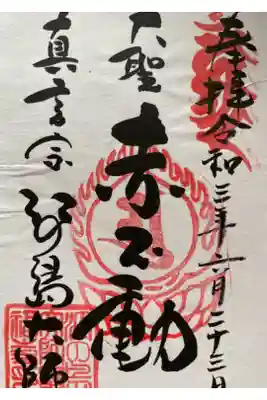 奉拝 令和三年六月二十三日
大聖 赤不動
真言宗 大師